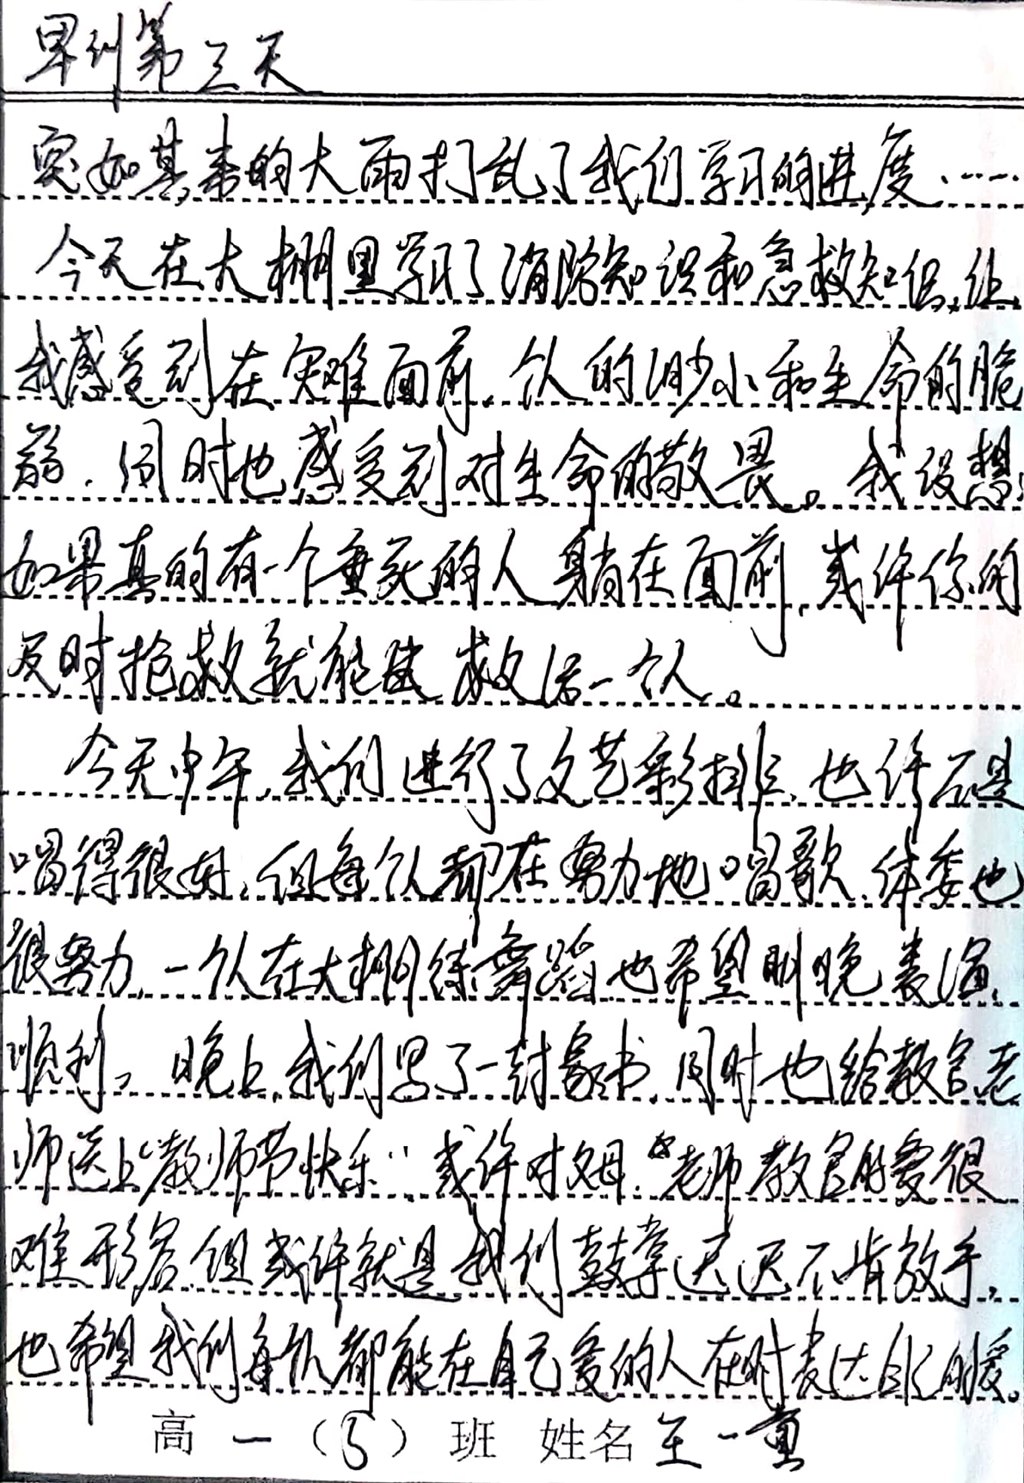 军训第三天
突如其来的大雨打乱了我们学习的进度……
今天在大棚里学习了消防知识和急救知识,让
我感受到在灾难面前,人的渺小和生命的脆
弱,同时也感受到对生命的敬畏。我设想:
如果真的有一个垂死的人躺在面前,或许你的
及时抢救就能 救活一个人。
今天中午,我们进行了文艺彩排,也许不是
唱得很好,但每个人都在努力地唱歌,体委也
很努力,一个人在大棚练舞蹈,也希望明晚表演
顺利。晚上,我们写了一封家书,同时也给教官老
师送上“教师节快乐”,或许对父母,老师教官的爱很
难形容,但或许就是我们鼓掌迟迟不肯放手,
也希望我们每个人都能在自己爱的人在时表达自己的爱。
高一(5)班 姓名 王一